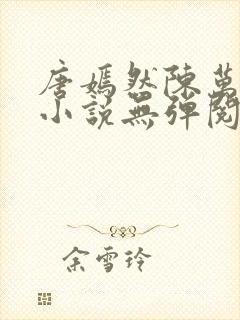 唐嫣然陳萬
小說無彈閱
余雪玲